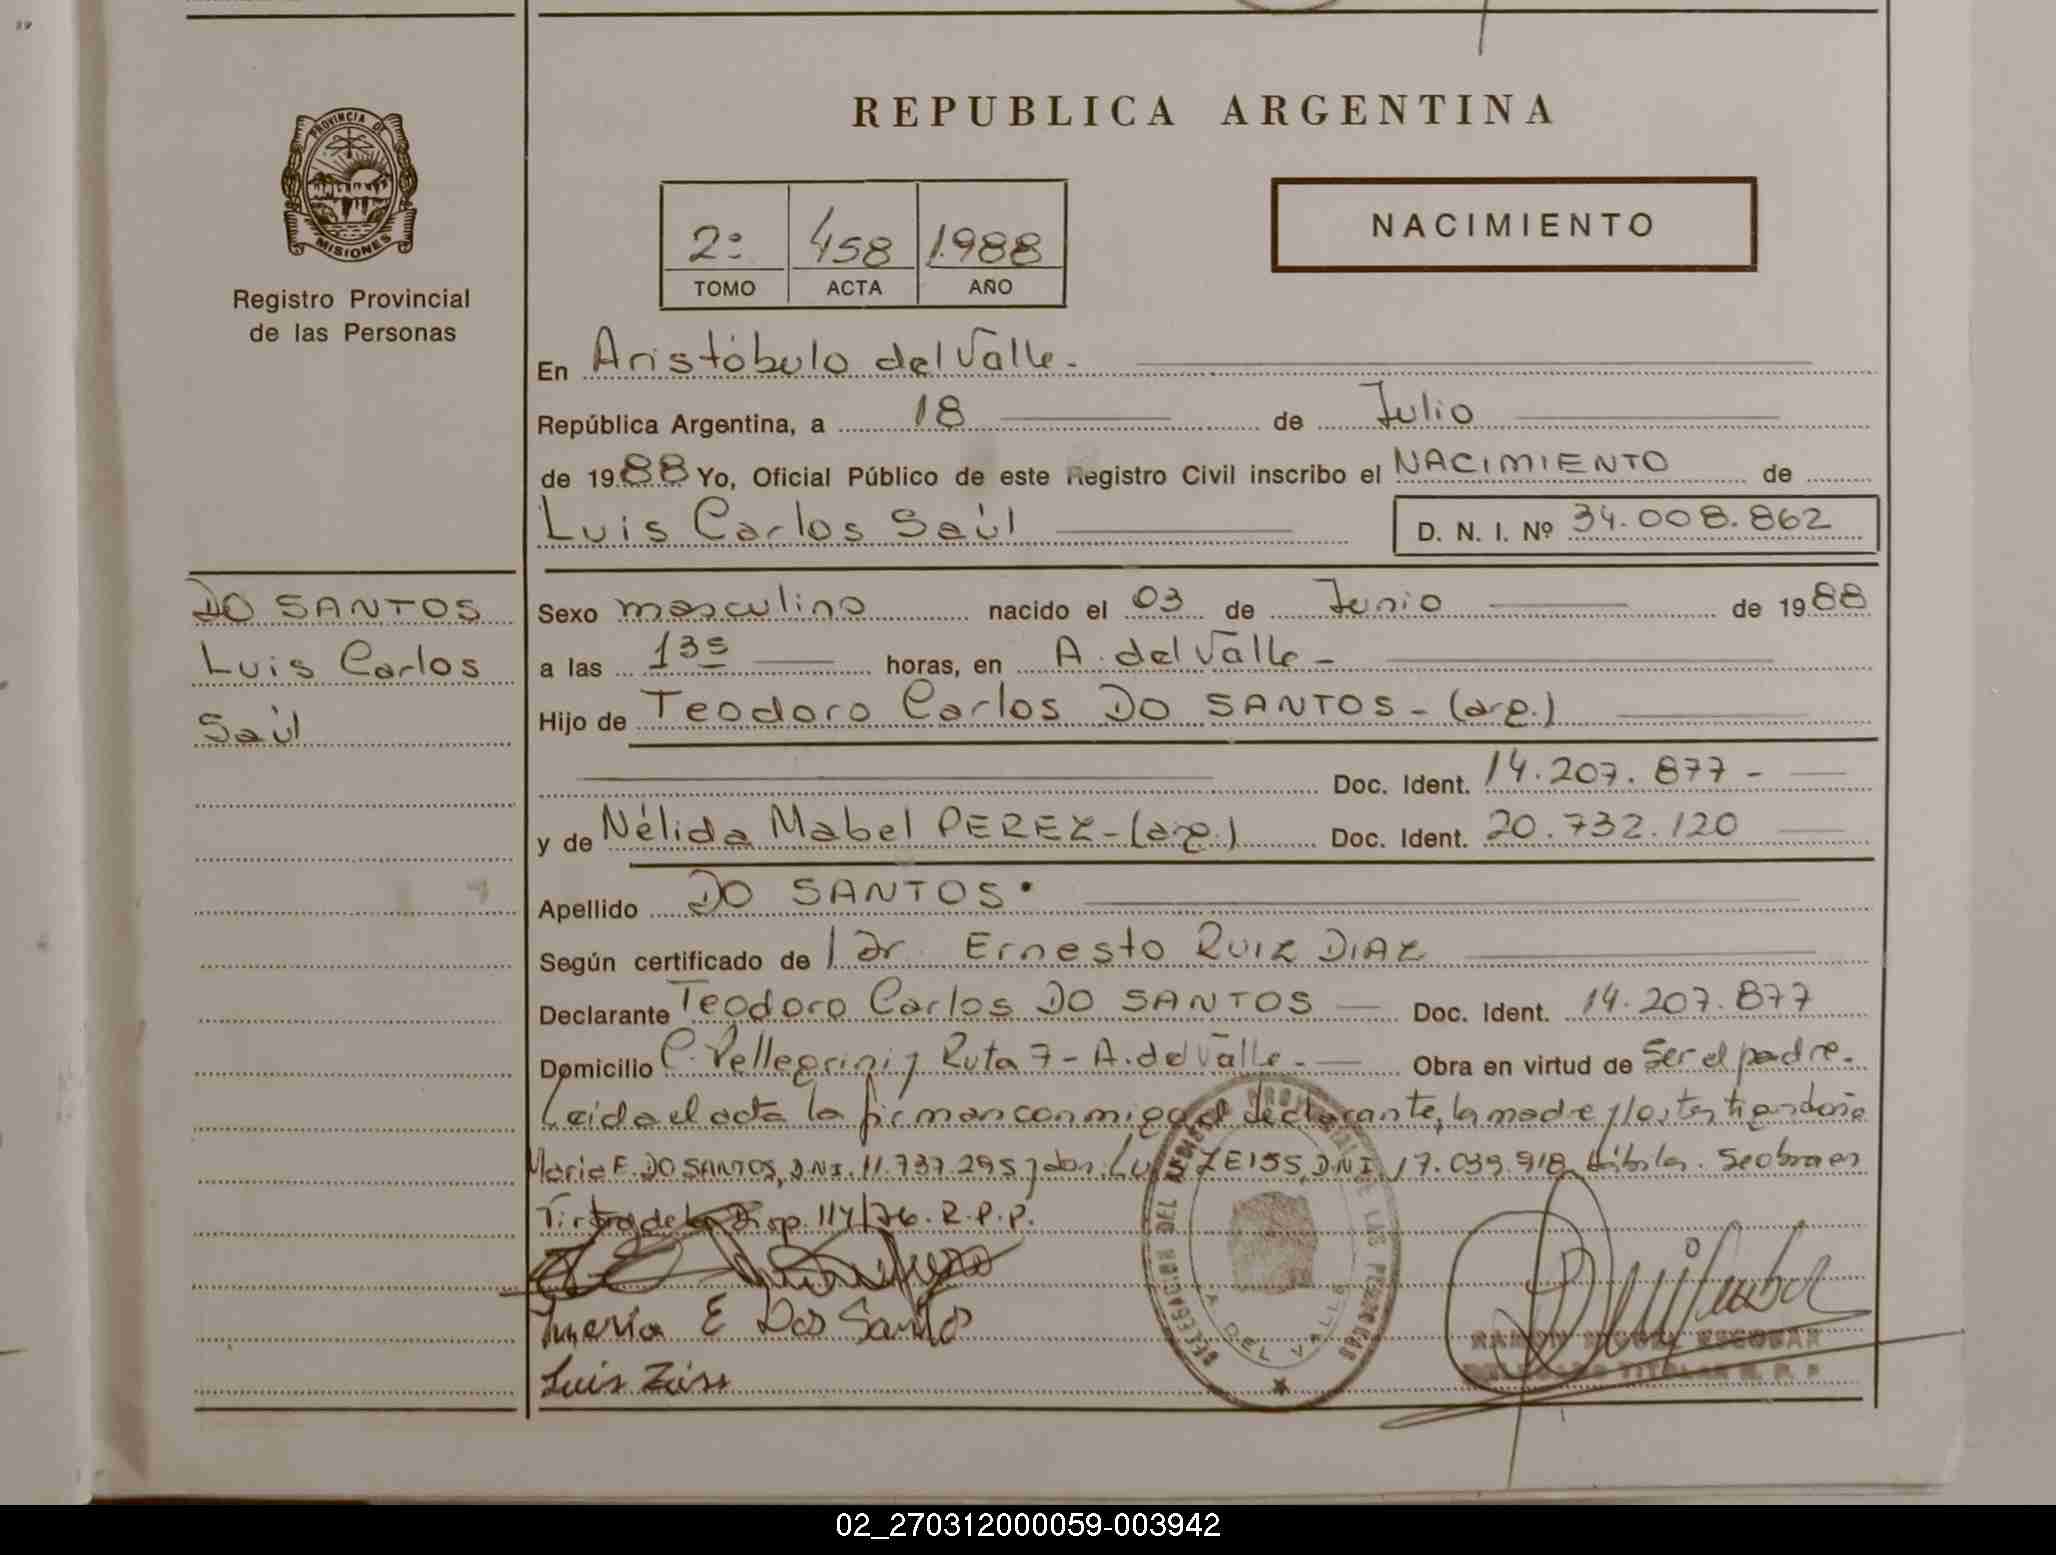 REPUBLICA ARGENTINA
PROVINCIA DE
MISIONES
Registro Provincial
de las Personas
2º 458 1.988
TOMO ACTA AÑO
NACIMIENTO
En Aristóbulo del Valle.
República Argentina, a 18 de Julio
de 1988 Yo, Oficial Público de este Registro Civil inscribo el NACIMIENTO de
Luis Carlos Saúl D. N. I. Nº 34.008.862
DO SANTOS
Luis Carlos
Saúl
Sexo masculino nacido el 03 de Junio de 1988
a las 13s horas, en A. del Valle -
Hijo de Teodoro Carlos DO SANTOS - (arg.)
Doc. Ident. 14.207.877 -
y de Nélida Mabel PEREZ - (arg.) Doc. Ident. 20.732.120
Apellido DO SANTOS.
Según certificado de l Dr. Ernesto RUIZ DIAZ
Declarante Teodoro Carlos DO SANTOS Doc. Ident. 14.207.877
Domicilio C. Pellegrini y Ruta 7 - A. del Valle - Obra en virtud de Ser el padre.
Leida el acta la firman conmigo el declarante, la madre y los testigos doña
Maria E. DO SANTOS, D.N.I. 11.737.295 y don Luis ZEISS, D.N.I. 17.039.918 hábiles. Se obra en
de la Disp. 114/76. R.P.P.
Maria E Dos Santos
Luis Zeiss
DELEGACION DEL REGISTRO PROVINCIAL DE LAS PERSONAS
A. DEL VALLE
RAMON MIGUEL ESCOBAR
DELEGADO TITULAR R. P. P.
02_270312000059-003942